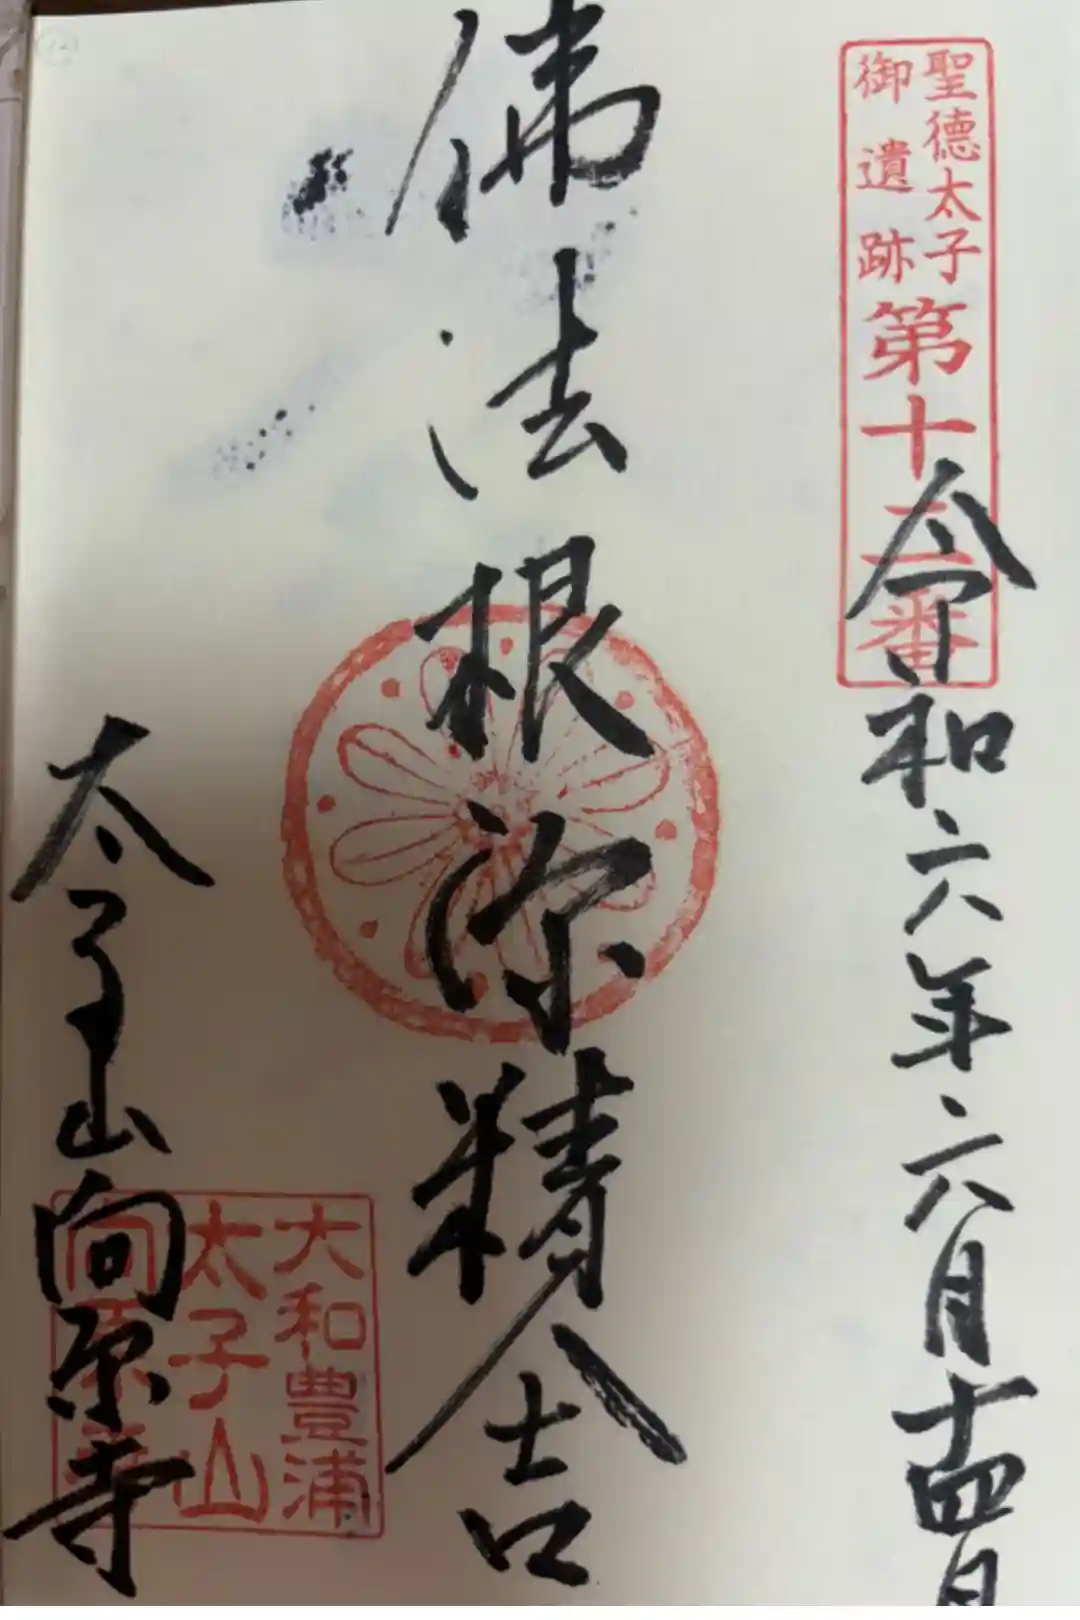 聖徳太子
御遺跡
第十二番
令和六年六月十四日
佛法根源精舎
大和豊浦
太子山
向原寺
太子山向原寺